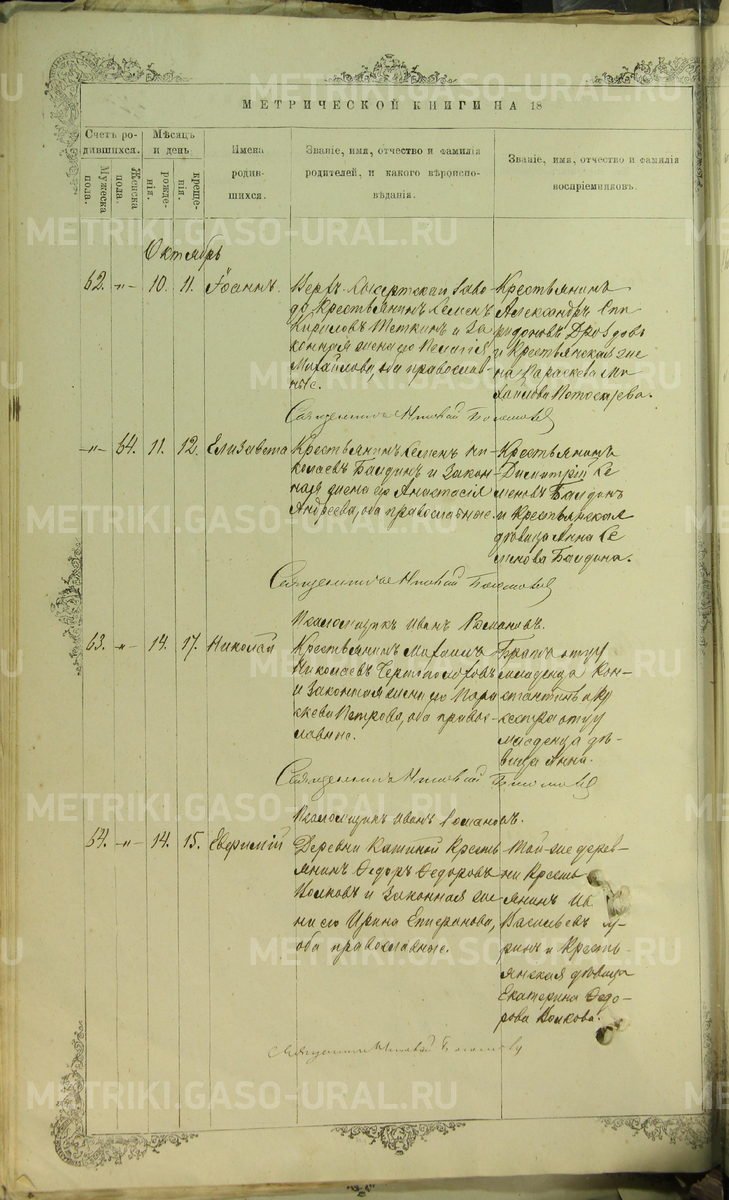 МЕТРИЧЕСКОЙ КНИГИ НА 18
Счетъ ро-
дившихся.
Мужеска
пола.
Женска
пола.
Мѣсяцъ
и день
рожде-
нія.
креще-
нія.
Имена
родив-
шихся.
Званіе, имя, отчество и фамилія
родителей, и какого вѣроиспо-
вѣданія.
Званіе, имя, отчество и фамилія
воспріемниковъ.
Октябрь
62. -„- 10. 11. Іоаннъ.
Верхъ-Сысертскаго заво
да Крестьянинъ Семенъ
Кириловъ Теткинъ и За
конная жена его Пелагія
Михайлова, оба православ
ные.
Крестьянинъ
Александръ Спи
ридоновъ Дроздовъ
и Крестьянская же
на Параскева Ми
хайлова
Священникъ Николай
-„- 54. 11. 12. Елизавета
Крестьянинъ Семенъ Ни
колаевъ Балдинъ и Закон-
ная жена его Анастасія
Андреева, оба православные.
Крестьянинъ
Димитрій Се
меновъ Балдинъ
и Крестьянская
дѣвица Анна Се
менова Балдина.
Священникъ Николай
Псаломщикъ Иванъ Романовъ.
63. -„- 14. 17. Николай
Крестьянинъ Михаилъ
Николаевъ
и Законная жена его Пара
скева Петрова, оба право-
славные.
Братъ отцу
младенца Кон-
стантинъ и
сестра отцу
младенца дѣ-
вица Анна.
Священникъ Николай
Псаломщикъ Иванъ Романовъ.
64. -„- 14. 15. Евфимій
Деревни Кашиной Кресть
янинъ Ѳедоръ Ѳедоровъ
Волковъ и Законная же
на его Ирина Епифанова,
оба православные.
Той-же дерев-
ни Кресть
янинъ
Васильевъ
и Кресть-
янская дѣвица
Екатерина Ѳедо-
рова Волкова.
Священникъ Николай
METRIKI.GASO-URAL.RU